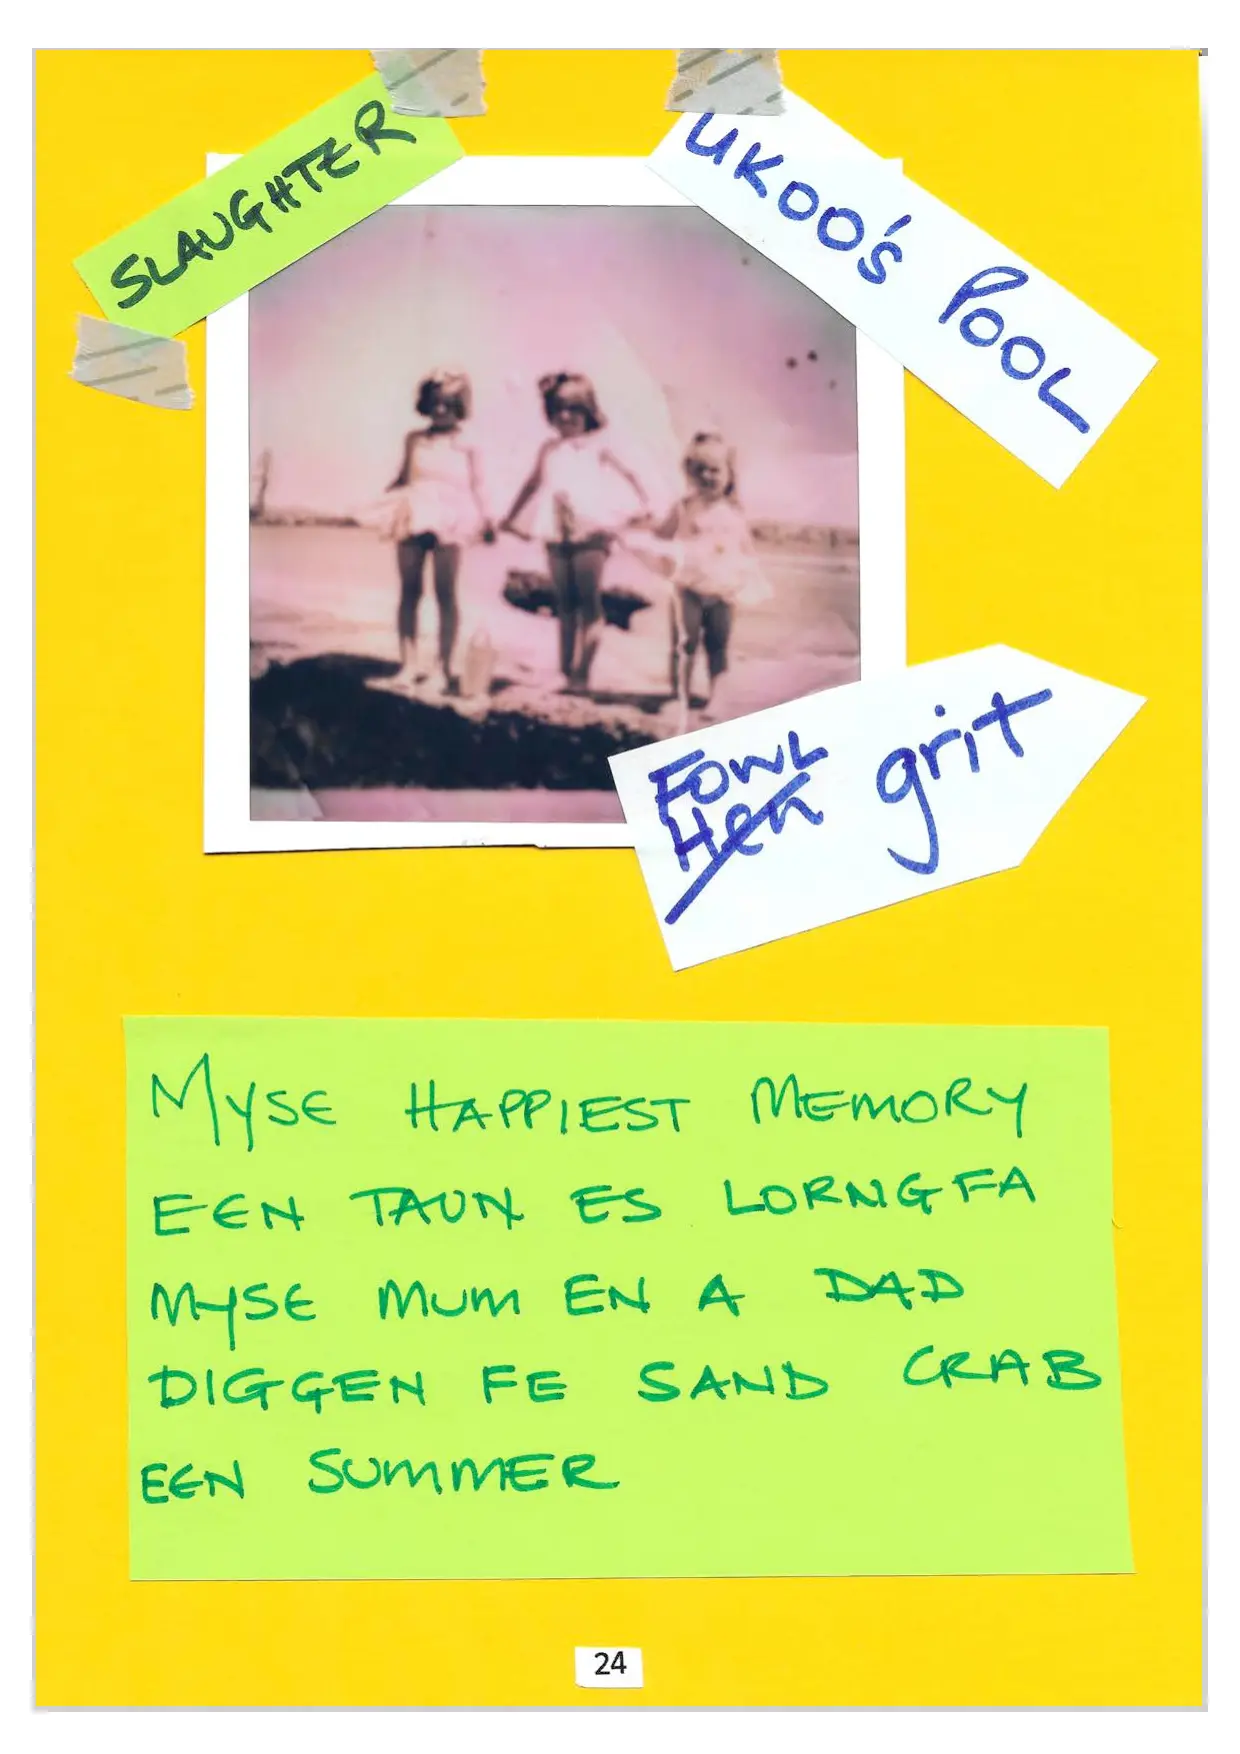 SLAUGHTER
UKOO'S POOL
FOWL
Hen grit
MYSE HAPPIEST MEMORY
EEN TAUN ES LORNGFA
MYSE MUM EN A DAD
DIGGEN FE SAND CRAB
EEN SUMMER
24